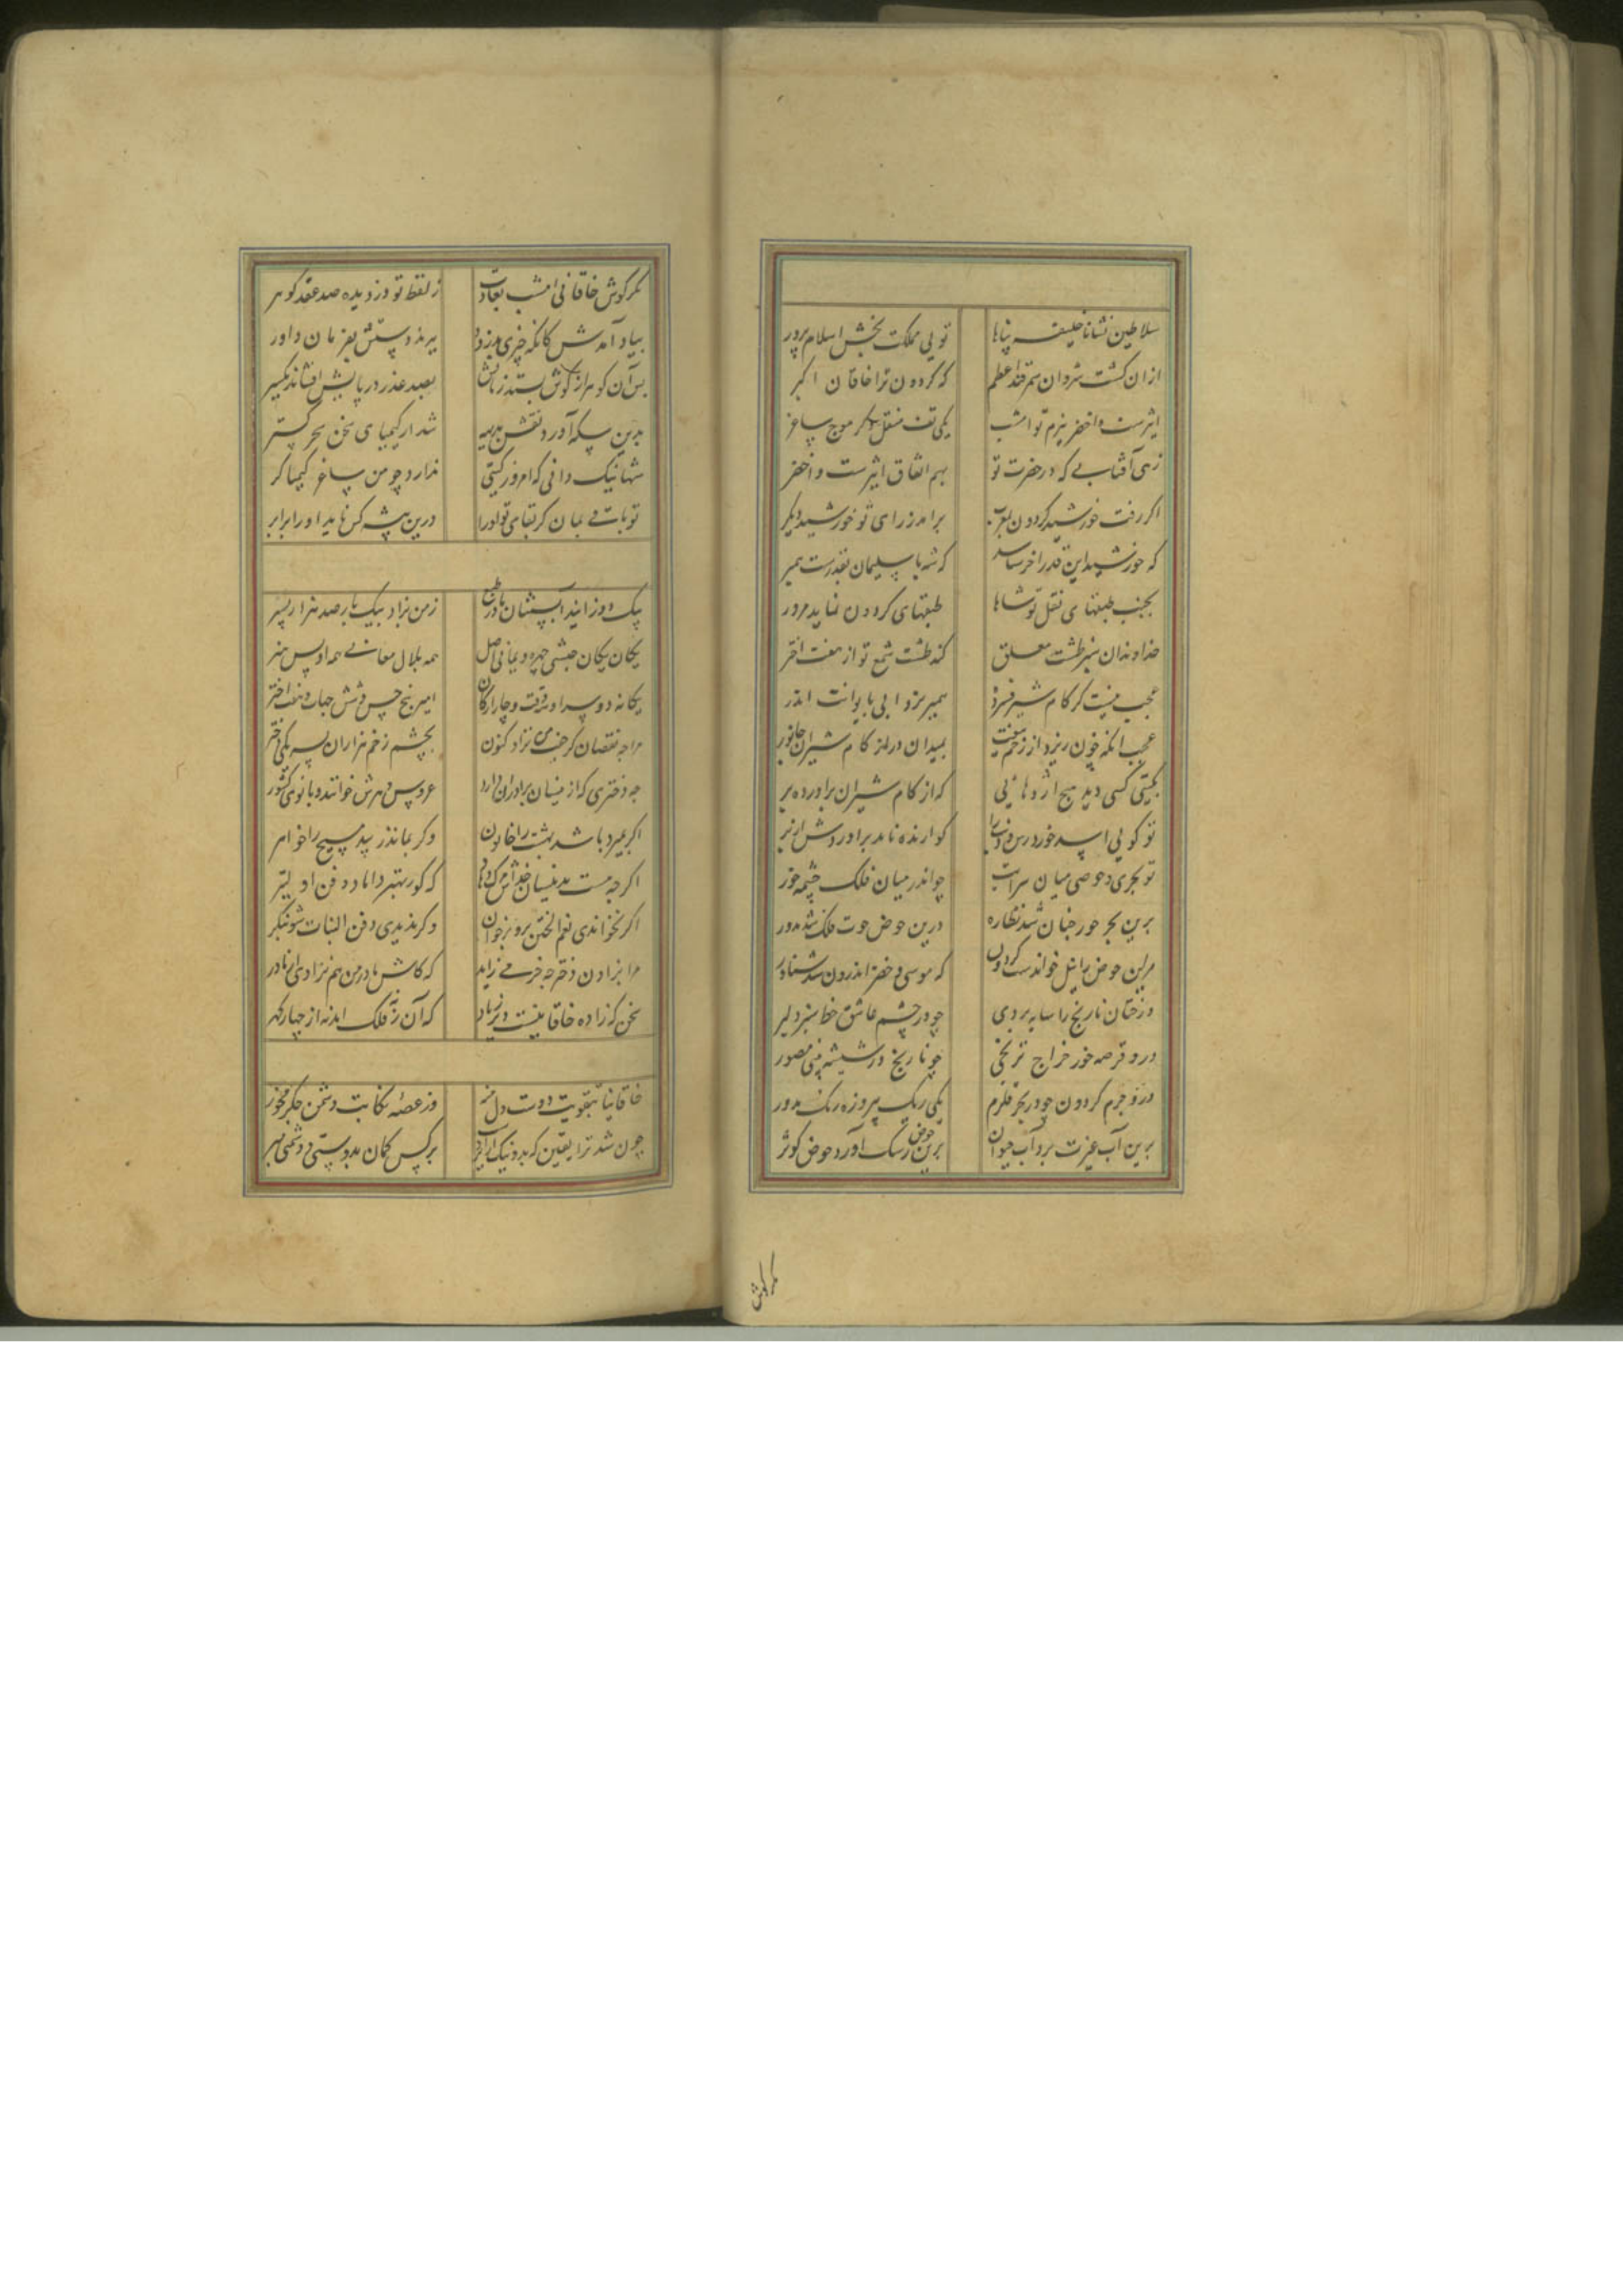 سلاطین نشانا خلیفه پناها تویی مملکت بخش اسلام پرور
ازان کشت شروان سمرقند اعظم که کردون ترا خاقان اکبر
اثیرست و اخضر بزم تو امشب یکی تف منقل دکر موج ساغر
زهی آفتابی که در حضرت تو بهم اتفاق اثیرست و اخضر
اکر رفت خورشید کردون بمغرب برامد ز رای تو خورشید دیکر
که خورشید این قدر اخر شناسد که شه با سلیمان بقدرست همبر
بجنب طبقهای نقل تو شاها طبقهای کردون نماید مزور
خداوندان سبز طشت معلق کند طشت شمع تو از هفت اختر
عجب نیست کر کام شیر فسرده
عجب انکه خون ریزد از زخم تیغت بمیدان در از کام شیران جانور
بکیتی کسی دید هیچ اژدهائی که از کام شیران برآورده بر
تو کویی اسد خورد راس ذنب را کوارنده نامد براوردش از بر
تو بحری و حوضی میان سرابت چو اندر میان فلک چشمه خور
برین بحر حور جنان شد نظاره درین حوض حوت فلک شد مدور
مر این حوض را نیل خواندست کردون که موسی و خضر اندرون شد شناور
درختان نارنج را سایه بر وی چو در چشم عاشق خط سبز دلبر
درو قرصه خور خراج ترنجی چو نارنج در شیشه بینی مصور
درو جرم کردون چو در بحر قلزم یکی ریک پیروزه رنک مدور
برین آب غیرت برد آب حیوان برین حوض رشک آورد حوض کوثر
مکر کوش
مکر کوش خاقانی امشب بعادت ز لفظ تو دزدیده صد عقد کوهر
بیاد آمدش کانکه چیزی بدزدد ببرند دستش بفرمان داور
بس آن کوهر از کوش بستد زبانش بصد عذر در پایش افشاند یکسر
بدین سکه آورد نقش بدیهه شد از کیمیای سخن سحر کستر
شها نیک دانی که امروز کیتی ندارد چو من ساغر کیمیاکر
تو باقی بمان کز بقای تو او را درین پیشه کس ناید او را برابر
یک دو زایند آبستنان مادر طبع ز من بزاد بیک بار صد هزار پسر
یکان یکان حبشی چهره و یمانی اصل همه بلال معانی همه اویس هنر
یکانه دو سرا و سه وقت و چار ارکان امیر پنج حس و شش جهات و هفت اختر
مرا چه نقصان کر جفت من نزاد کنون بچشم زخم هزاران پسر یکی دختر
که دختری که ازینسان برادران دارد عروس دهرش خوانند و بانوی کشور
اکر بمیرد باشد بهشت را خاتون وکر بماند زیبد مسیح را خواهر
اکرچه هست بدینسان خداش مرک دهاد که کور بهتر داماد و دفن اولیتر
اکر نخواندی نعم الختن برو برخوان وکر ندیدی دفن البنات شو بنکر
مرا بزادن دختر چه خرمی زاید که کاش مادر من هم نزادی از مادر
سخن که زاده خاقانیست دیر زیاد که آن ز نه فلک آمد نه از چهار کهر
خاقانیا بتقویت دوست دل منه وز غصه نکایت دشمن جکر مخور
چون شد ترا یقین که بد و نیک از ایزدست بر کس کمان بدوستی و دشمنی مبر